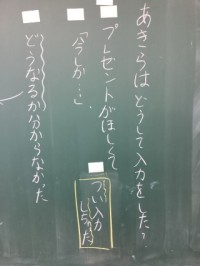 あきらはどうして入力をした?
プレゼントがほしくて
「今しか…」
つい入力
しちゃった
どうなるか分からなかった